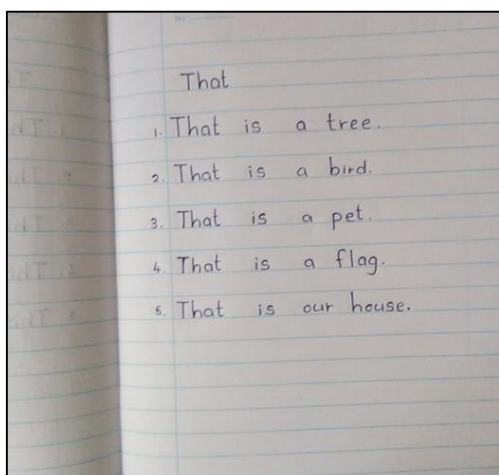 That
1. That is a tree.
2. That is a bird.
3. That is a pet.
4. That is a flag.
5. That is our house.